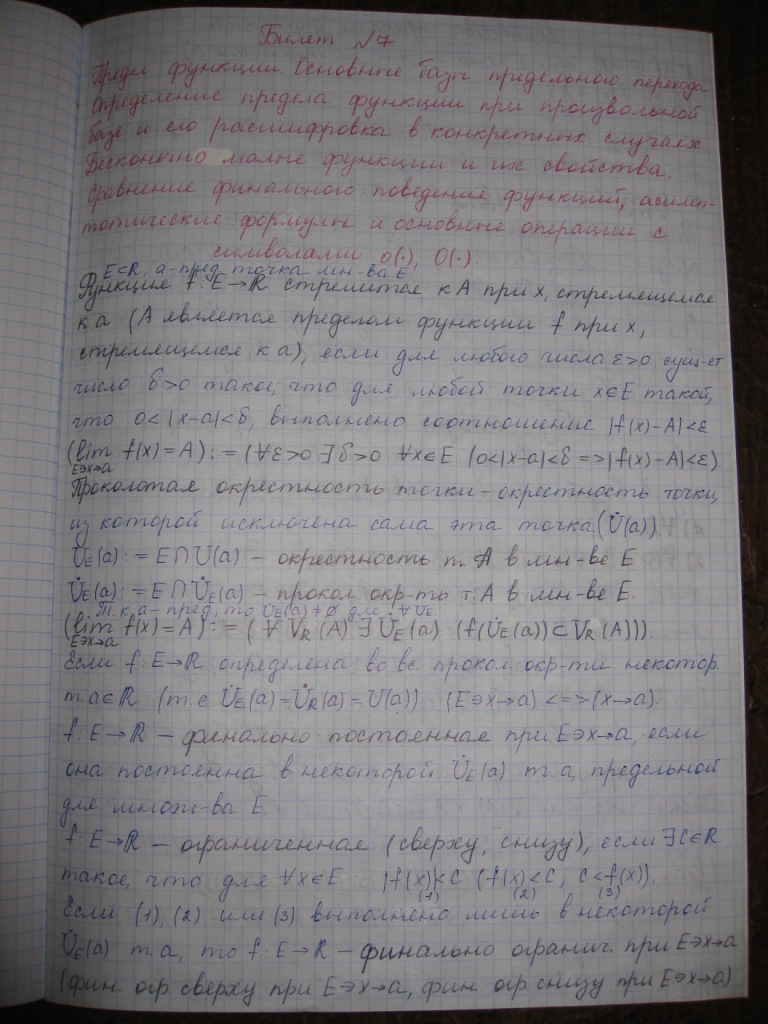 Билет №7
Предел функции. Основные базы предельного перехода
Определение предела функции при произвольной
базе и его расшифровка в конкретных случаях
Бесконечно малые функции и их свойства.
Сравнение финального поведения функций, асимп-
тотические формулы и основные операции с
символами o(·), O(·).
E⊂R, a-пред. точка мн-ва E
Функция f: E→R стремится к A при x, стремящемся
к a (A является пределом функции f при x,
стремящемся к a), если для любого числа ε>0 сущ-ет
число δ>0 такое, что для любой точки x∈E такой,
что 0<|x-a|<δ, выполнено соотношение |f(x)-A|<ε
(lim f(x)=A):=(∀ε>0 ∃δ>0 ∀x∈E (0<|x-a|<δ=>|f(x)-A|<ε)
E∋x→a
Проколотая окрестность точки - окрестность точки,
из которой исключена сама эта точка (U̇(a))
U_E(a):=E∩U(a) – окрестность т. A в мн-ве E
U̇_E(a):=E∩U̇_E(a) – прокол. окр-ть т. A в мн-ве E.
Т.к. a-пред, то U̇_E(a)≠∅ для ∀U_E
(lim f(x)=A):=(∀V_R(A) ∃U̇_E(a) (f(U̇_E(a))⊂V_R(A))).
E∋x→a
Если f: E→R определена во вс. прокол. окр-ти некотор.
т. a∈R (т.е U̇_E(a)=U̇_R(a)=U(a)) (E∋x→a)<=>(x→a).
f: E→R – финально постоянная при E∋x→a, если
она постоянна в некоторой U̇_E(a) т.a, предельной
для множ-ва E
f: E→R – ограниченная (сверху, снизу), если ∃C∈R
такое, что для ∀x∈E: |f(x)|<C (f(x)<C, C<f(x)).
(1) (2) (3)
Если (1), (2) или (3) выполнено лишь в некоторой
U̇_E(a) т.a, то f: E→R – финально огранич. при E∋x→a
(фин. огр. сверху при E∋x→a, фин. огр снизу при E∋x→a)